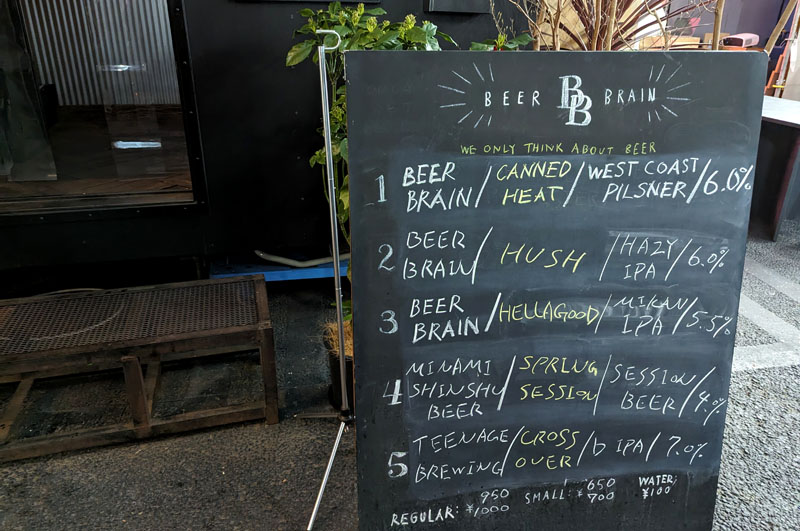 BEER BB BRAIN
WE ONLY THINK ABOUT BEER
1 BEER BRAIN / CANNED HEAT / WEST COAST PILSNER / 6.0%
2 BEER BRAIN / HUSH / HAZY IPA / 6.0%
3 BEER BRAIN / HELLAGOOD / MIKAN IPA / 5.5%
4 MINAMI SHINSHU BEER / SPRING SESSION / SESSION BEER / 4.0%
5 TEENAGE BREWING / CROSS OVER / b IPA / 7.0%
REGULAR: 950 ¥1000 SMALL: 650 ¥700 WATER; ¥100